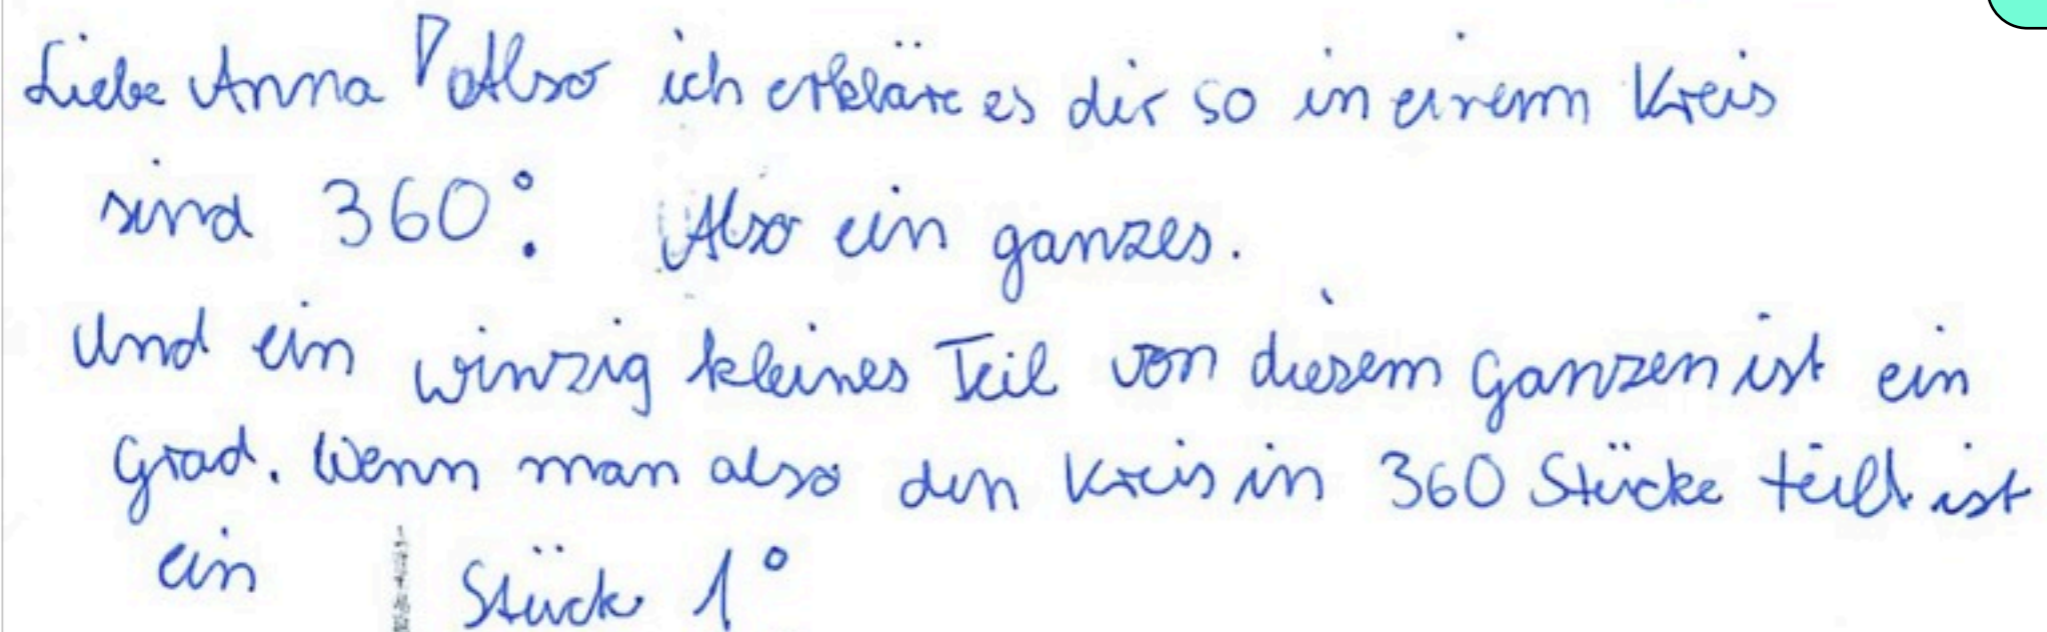 Liebe Anna! Also ich erkläre es dir so in einem Kreis
sind 360°. Also ein ganzes.
Und ein winzig kleines Teil von diesem Ganzen ist ein
Grad. Wenn man also den Kreis in 360 Stücke teilt ist
ein Stück 1°